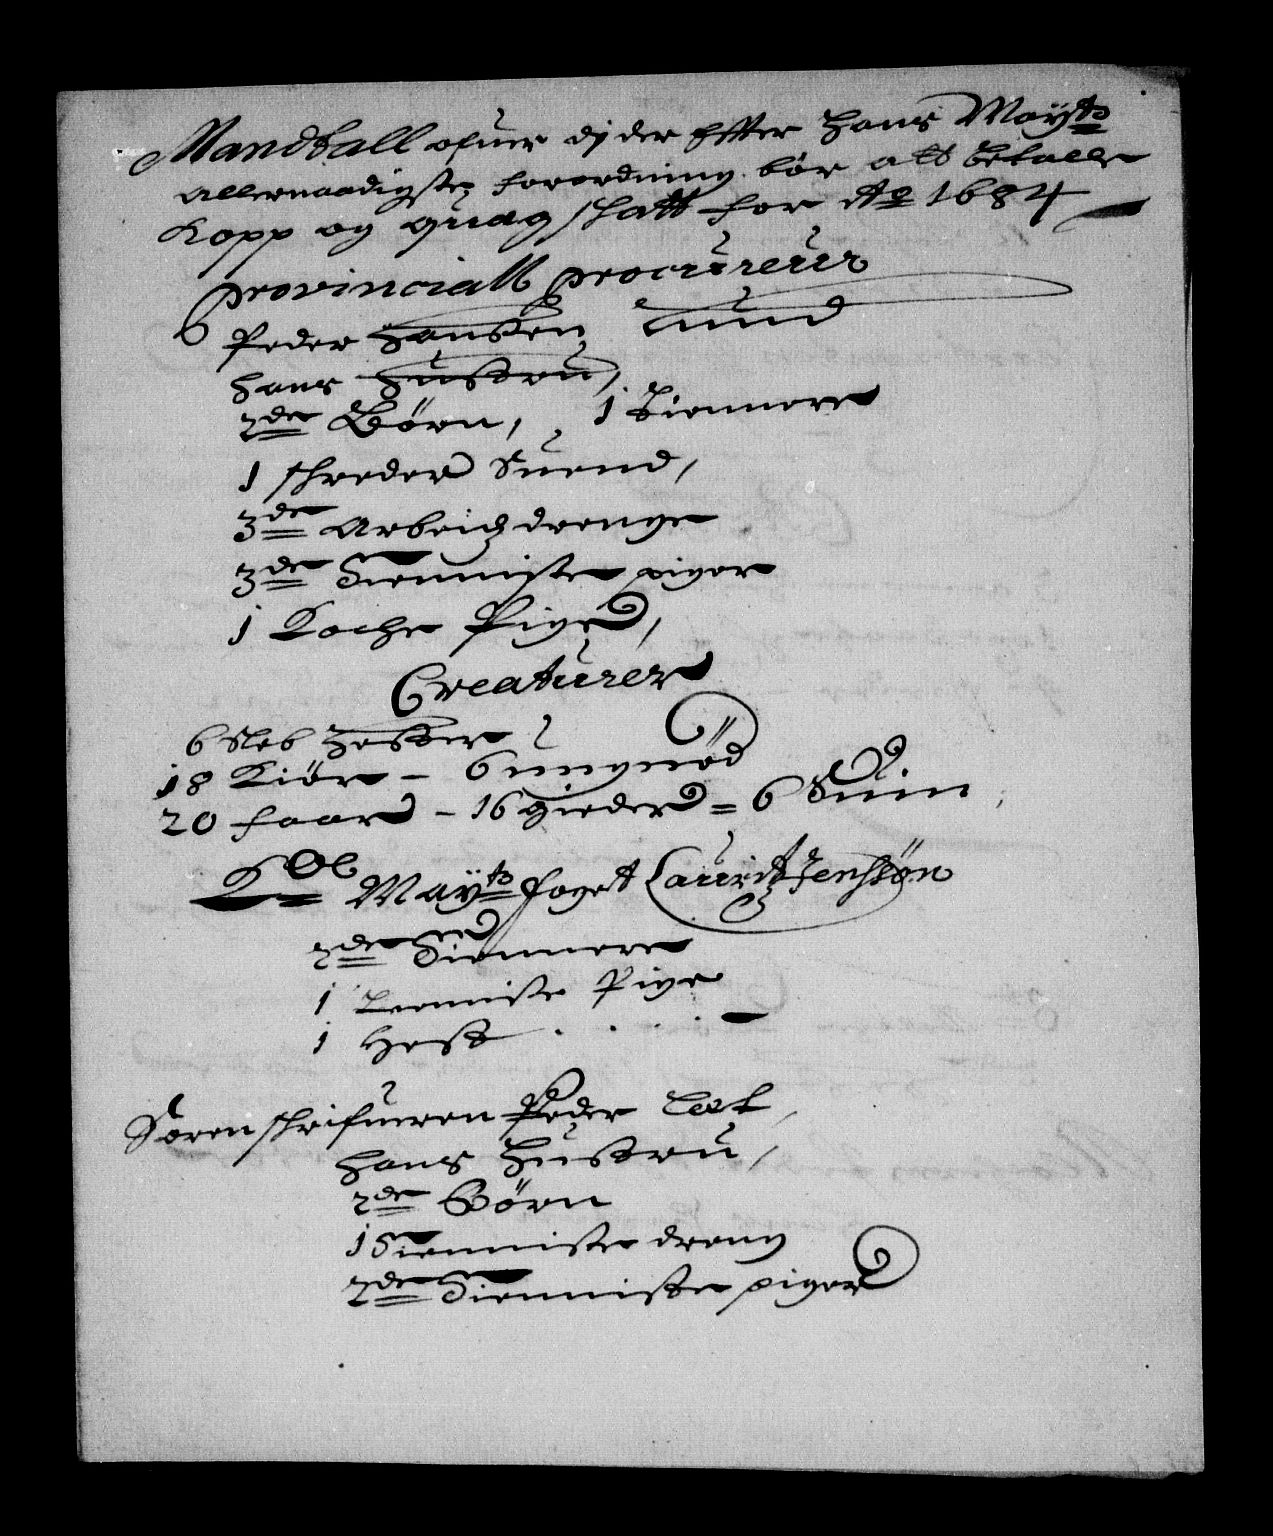 Mandtall ofuer dj der Effter Hans Mayts
allernaadigste forordning bör att betalle
Kopp og quæg skatt for Ao 1684
Provinciall Procureur
Peder Hanssen Lund
Hans Hustru,
2de Börn, 1 Tiennere
1 skreder Suend,
3de Arbeidz drenge
3de Tienniste piger
1 Koche Pige,
Creaturer
6 Sleb Hester
18 Kiör – 6 ungnöd
20 faar – 16 gieder = 6 Suin
Kol Mayts foget Lauritz Jensøn
2de Tiennere
1 Tienniste Pige
1 Hest
Sorenskrifueren Peder
Hans Hustru,
2de Börn
1 Tienniste dreng
2de Tienniste piger